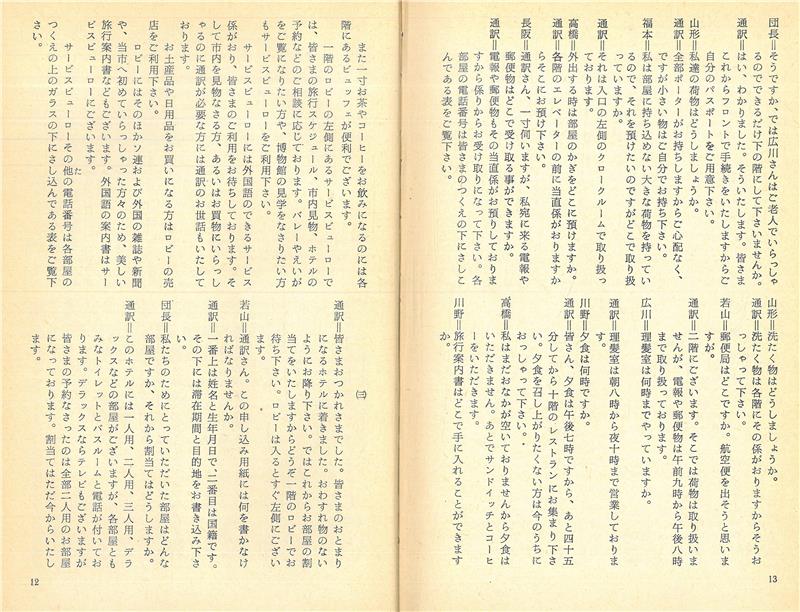 また一寸お茶やコーヒーをお飲みになるのには各
階にあるビュッフェが便利でございます。
一階のロビーの左側にあるサービスビューローで
は、皆さまの旅行スケジュール、市内見物、ホテルの
予約などのご相談に応じております。バレーやえいが
をご覧になりたい方や、博物館の見学をなさりたい方
もサービスビューローをご利用下さい。
サービスビューローには外国語のできるサービス
係がおり、皆さまのご利用をお待ちしております。そ
して市内を見物なさる方、あるいはお買物にいらっし
ゃるのに通訳が必要な方には通訳のお世話もいたして
おります。
お土産品や日用品をお買いになる方はロビーの売
店をご利用下さい。
ロビーにはそのほかソ連および外国の雑誌や新聞
や、当市へ初めていらっしゃった方々のため、美しい
旅行案内書などもございます。外国語の案内書はサー
ビスビューローにございます。
サービスビューローその他の電話番号は各部屋の
つくえの上のガラスの下にさし込んである表をご覧下
さい。
(三)
通訳=皆さまおつかれさまでした。皆さまのおとまり
になるホテルに着きました。おわすれ物のない
ようにお降り下さい。ではこれからお部屋の割
当てをいたしますからどうぞ一階のロビーでお
待ち下さい。ロビーは入るとすぐ左側にござい
ます。
若山=通訳さん。この申し込み用紙には何を書かなけ
ればなりませんか。
通訳=一番上は姓名と生年月日で、二番目は国籍です。
その下には滞在期間と目的地をお書き込み下さ
い。
団長=私たちのためにとっていただいた部屋はどんな
部屋ですか、それから割当てはどうしますか。
通訳=このホテルには一人用、二人用、三人用、デラ
ックスなどの部屋がございますが、各部屋とも
みなトイレットとバスルームと電話が付いてお
ります。デラックスならテレビもございますが
皆さまの予約なさったのは全部二人用のお部屋
になっております。割当てはただ今からいたし
12
団長=そうですか、では広川さんはご老人でいらっしゃ
るのでできるだけ下の階にして下さいませんか。
通訳=はい、わかりました。そういたします。皆さま
これからフロントで手続きをいたしますからご
自分のパスポートをご用意下さい。
山形=私達の荷物はどうしましょうか。
通訳=全部ポーターがお持ちしますからご心配なく、
ですが小さい物はご自分でお持ち下さい。
福本=私は部屋に持ち込めない大きな荷物を持ってい
るので、それを預けたいのですがどこで取り扱
っていますか。
通訳=それは入口の左側のクロークルームで取り扱っ
ております。
高橋=外出する時は部屋のかぎをどこに預けますか。
通訳=各階のエレベーターの前に当直係がおりますか
らそこにお預け下さい。
長阪=通訳さん、一寸伺いますが、私宛に来る電報や
郵便物はどこで受け取る事ができますか。
通訳=電報や郵便物もその当直係がお預りしておりま
すから係りからお受け取りになって下さい。各
部屋の電話番号は皆さまのつくえの下にさしこ
んである表をご覧下さい。
山形=洗たく物はどうしましょうか。
通訳=洗たく物は各階にその係がおりますからそうお
っしゃって下さい。
若山=郵便局はどこですか。航空便を出そうと思いま
すが。
通訳=二階にございます。そこでは荷物は取り扱いま
せんが、電報や郵便物は午前九時から午後八時
まで取り扱っております。
広川=理髪室は何時までやっていますか。
通訳=理髪室は朝八時から夜十時まで営業しておりま
す。
川野=夕食は何時ですか。
通訳=皆さん、夕食は午後七時ですから、あと四十五
分してから十階のレストランにお集まり下さ
い。夕食を召し上がりたくない方は今のうちに
おっしゃって下さい。
高橋=私はまだおなかが空いておりませんから夕食は
いただきません。あとでサンドイッチとコーヒ
ーをいただきます。
川野=旅行案内書はどこで手に入れることができます
か。
13